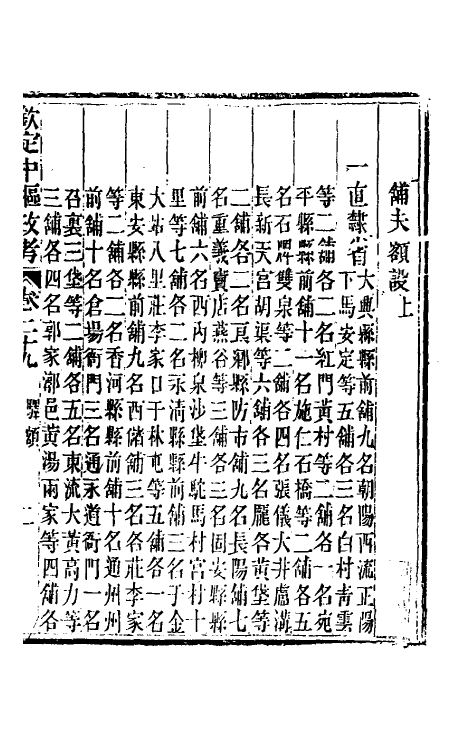 舖夫額設上
一直隸省大興縣縣前舖九名朝陽西流正陽
下馬安定等五舖各三名白村青雲
等二舖各二名紅門黃村等二舖各一名宛
平縣縣前舖十一名施仁石橋等二舖各五
名石牌雙泉等二舖各四名張儀大井盧溝
長新天宮胡渠等六舖各三名龐各黃垡等
二舖各二名良鄉縣防市舖九名長陽舖七
名重義竇店燕谷等三舖各三名固安縣縣
前舖六名西內柳泉沙堡牛駝馬村宮村十
里等七舖各二名永清縣縣前舖三名于金
大站八里莊李家口于林屯等五舖各一名
東安縣縣前舖九名西儲舖三名各莊李家
等二舖各二名香河縣縣前舖十名通州州
前舖十名倉場衙門三名通永道衙門一名
召裏三垡等二舖各五名東流大黃高力等
三舖各四名郭家漷邑黃湯兩家等四舖各
欽定中樞政考 卷二十九 驛額 二